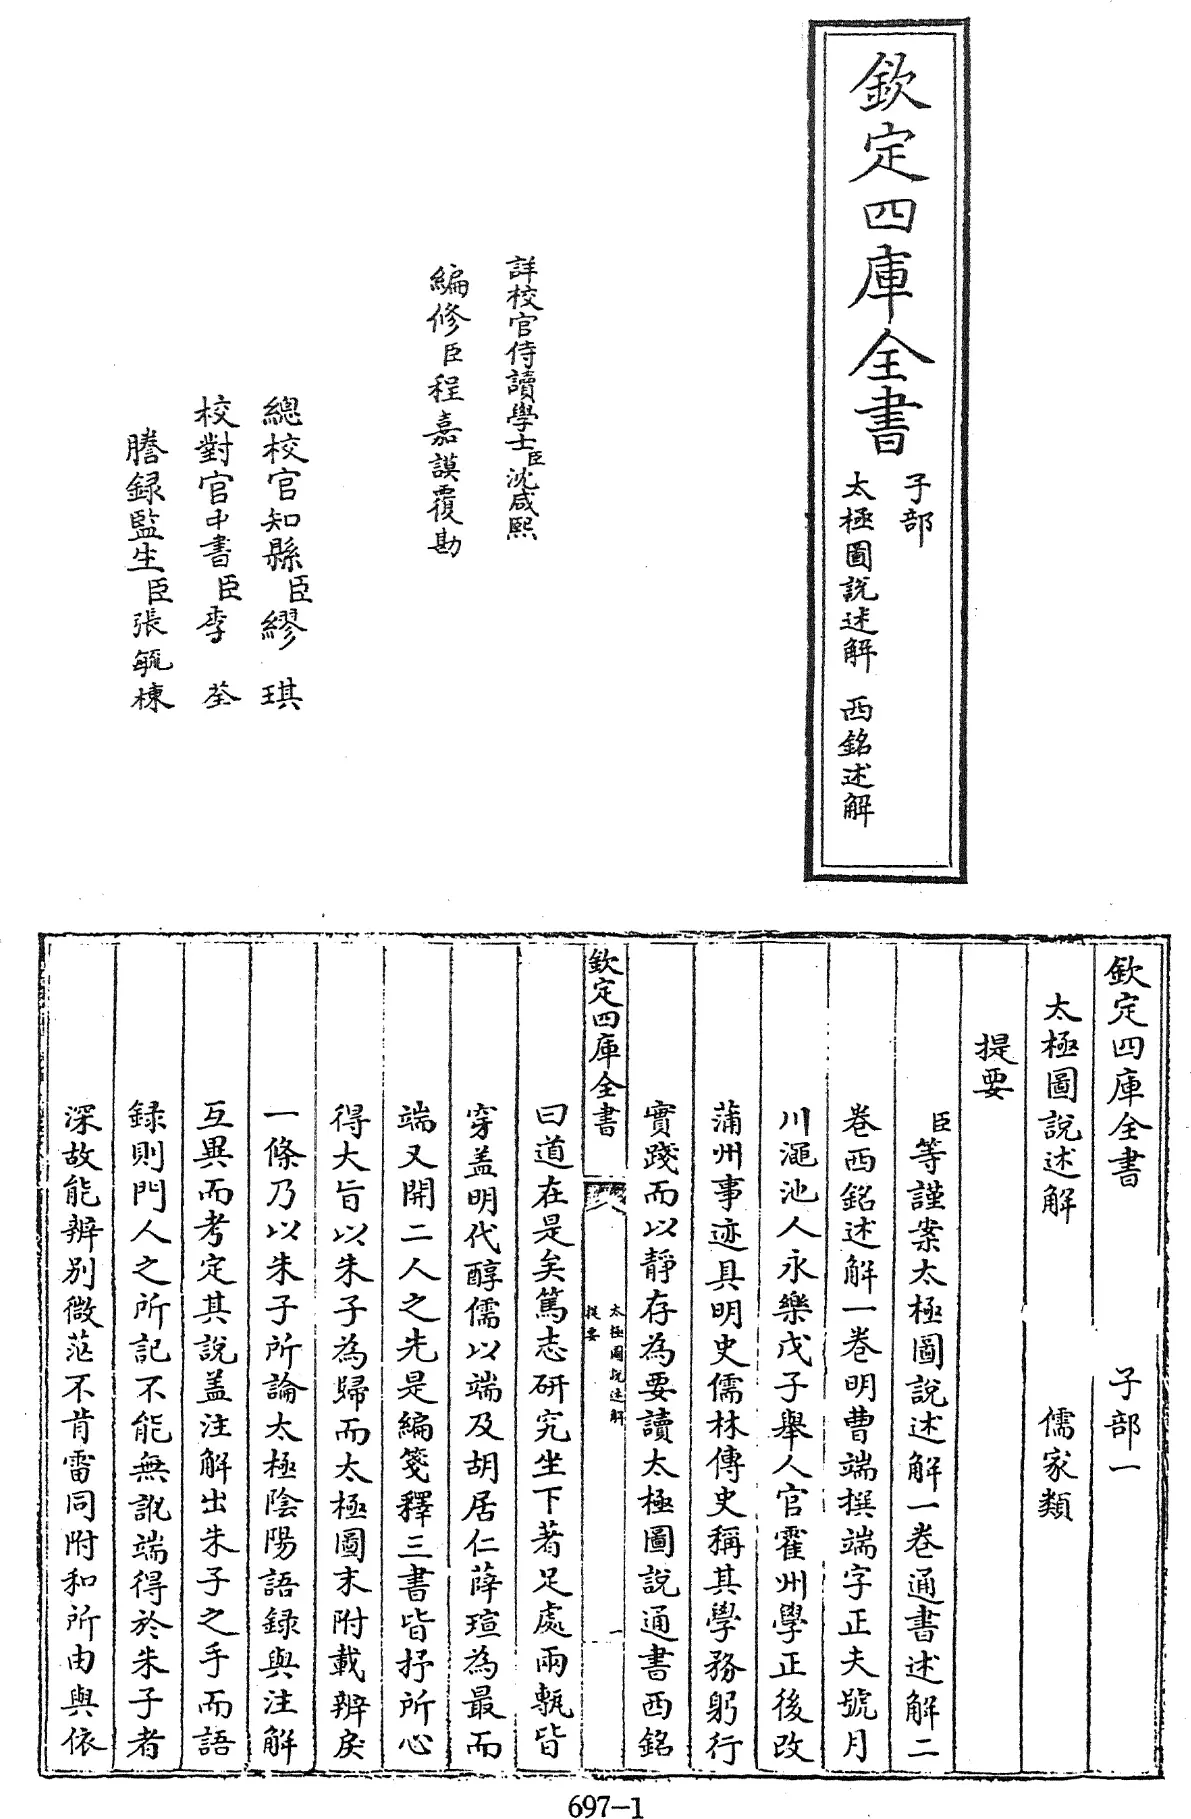 欽定四庫全書
子部
太極圖說述解 西銘述解
詳校官侍讀學士臣沈咸熙
編修臣程嘉謨覆勘
總校官知縣臣繆 琪
校對官中書臣李 荃
謄錄監生臣張毓棟
欽定四庫全書 子部一
太極圖說述解 儒家類
提要
臣等謹案太極圖說述解一卷通書述解二
卷西銘述解一卷明曹端撰端字正夫號月
川澠池人永樂戊子舉人官霍州學正後改
蒲州事迹具明史儒林傳史稱其學務躬行
實踐而以靜存為要讀太極圖說通書西銘
欽定四庫全書
太極圖說述解
提要
一
曰道在是矣篤志研究坐下著足處兩甎皆
穿盖明代醇儒以端及胡居仁薛瑄為最而
端又開二人之先是編箋釋三書皆抒所心
得大旨以朱子為歸而太極圖末附載辨戾
一條乃以朱子所論太極陰陽語錄與注解
互異而考定其說盖注解出朱子之手而語
錄則門人之所記不能無訛端得於朱子者
深故能辨別微茫不肯雷同附和所由與依
697-1